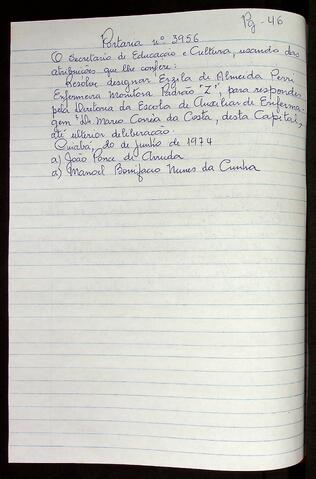 Pg - 46
Portaria nº 3956
O Secretario de Educação e Cultura, usando das
atribuições que lhe confere:
Resolve designar Erzila de Almeida Perri
Enfermeira Monitora Padrão "Z", para responder
pela Diretoria da Escola de Auxiliar de Enferma-
gem "Dr. Mario Corrêa da Costa, desta Capital,
até ulterior deliberação.
Cuiabá, 20 de junho de 1974
a) João Ponce de Arruda
a) Manoel Bonifacio Nunes da Cunha